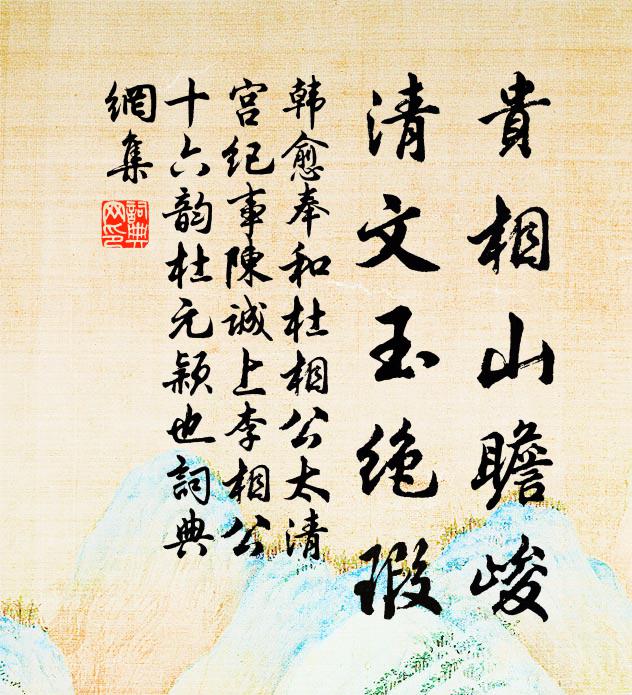 貴相山瞻峻
清文玉絶瑕
韩愈奉和杜相公太清
宫纪事陳誠上李相公
十六韵杜元颖也詞典
網集
詞典
网印